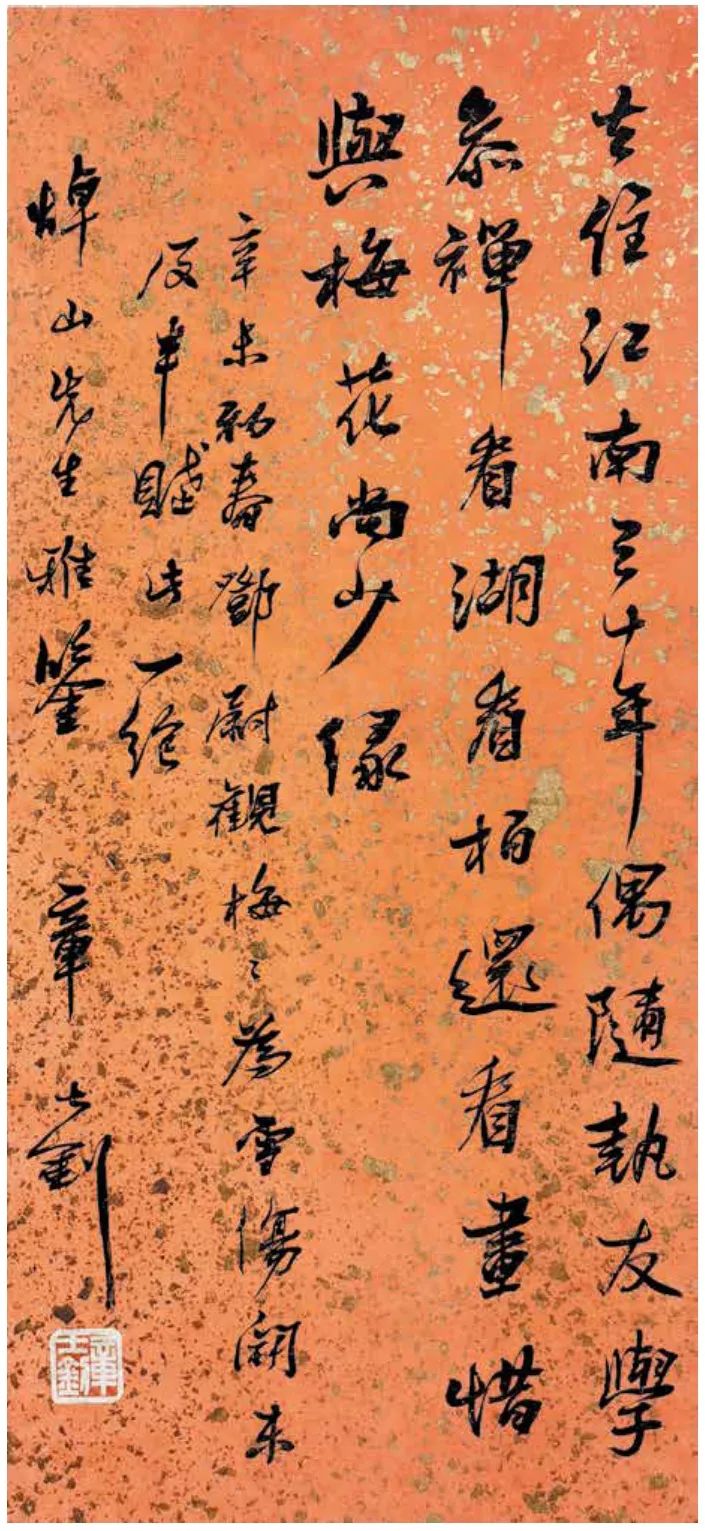 去住江南三十年偶隨執友學
參禪看湖看柏還看畫惜
與梅花尚少緣
辛未初春鄧尉觀梅々為雪傷開未
及半賦此一絕
焯山先生雅鑒 章士釗
章士釗